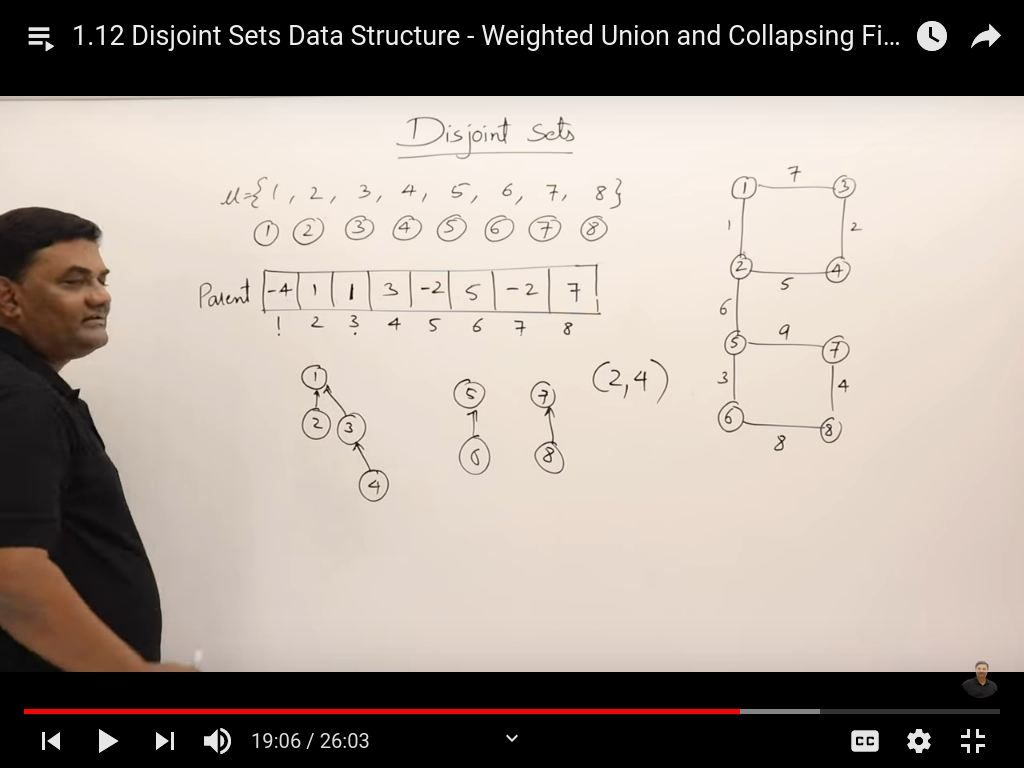 1.12 Disjoint Sets Data Structure - Weighted Union and Collapsing Fi...
Disjoint Sets
μ={1, 2, 3, 4, 5, 6, 7, 8}
1 2 3 4 5 6 7 8
Parent -4 1 1 3 -2 5 -2 7
1 2 3 4 5 6 7 8
1
2 3
4
5
6
7
8
(2,4)
1 7 3
1 2
2 5 4
6
5 9 7
3 4
6 8 8
19:06 / 26:03
CC